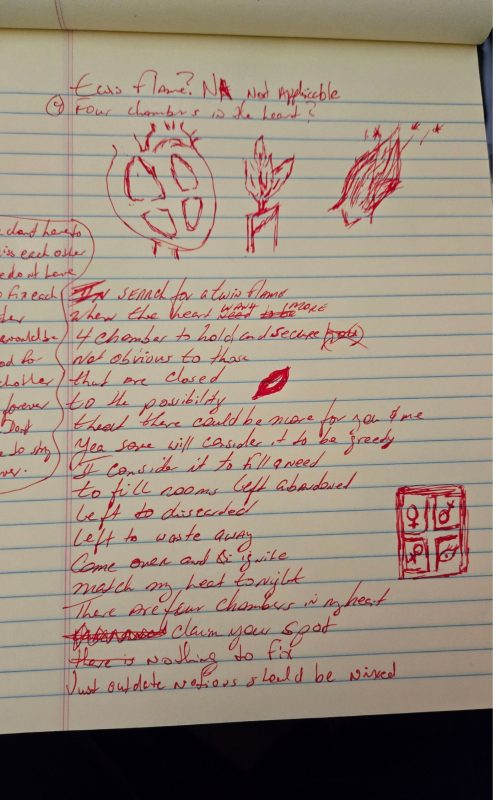 Twin flame? NA Not Applicable
Four chambers in the heart?
IN SEARCH for a twin flame
When the heart WANT MORE
4 chamber to hold and secure
Not obvious to those
that are closed
to the possibility
that there could be more for you & me
Yea some will consider it to be greedy
I consider it to fill a need
to fill rooms left abandoned
Left to discarded
Left to waste away
Come over and ignite
match my heat tonight
There are four chambers in my heart
claim your spot
there is nothing to fix
Just outdate notions should be nixed
dont have to
each other
dont have
fix each
would be
for
forever
to stay